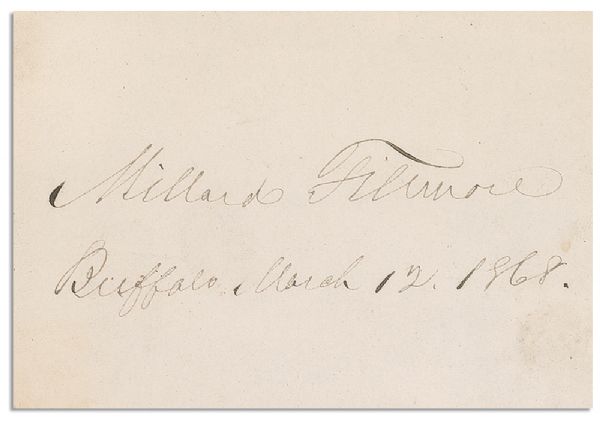 Millard Fillmore
Buffalo, March 12. 1868.